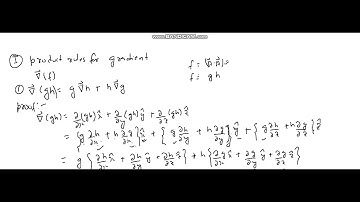 WWW.BANDICAM.COM
Ⓘ product rules for gradient
∇⃗(f)
f = (A⃗·B⃗)
f = gh
① ∇⃗(gh) = g ∇⃗h + h ∇⃗g
proof:-
∇⃗(gh) = ∂/∂x (gh) x̂ + ∂/∂y (gh) ŷ + ∂/∂z (gh) ẑ
= {g ∂h/∂x + h ∂g/∂x} x̂ + {g ∂h/∂y + h ∂g/∂y} ŷ + {g ∂h/∂z + h ∂g/∂z} ẑ
= g {∂h/∂x x̂ + ∂h/∂y ŷ + ∂h/∂z ẑ} + h {∂g/∂x x̂ + ∂g/∂y ŷ + ∂g/∂z ẑ}